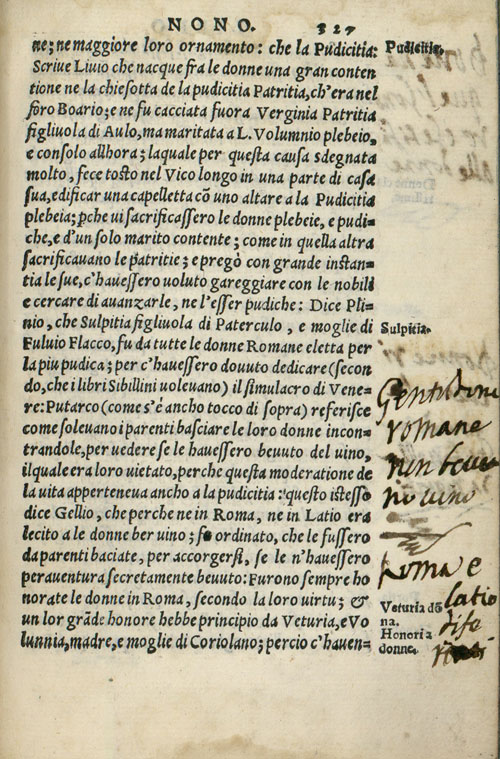 NONO. 327
ne; ne maggiore loro ornamento: che la Pudicitia:
Pudicitia.
Scriue Liuio che nacque fra le donne una gran conten
tione ne la chiesotta de la pudicitia Patritia, ch'era nel
foro Boario; e ne fu cacciata fuora Verginia Patritia
figliuola di Aulo, ma maritata a L. Volumnio plebeio,
e consolo allhora; laquale per questa causa sdegnata
molto, fece tosto nel Vico longo in una parte di casa
sua, edificar una capelletta cō uno altare a la Pudicitia
plebeia; pche ui sacrificassero le donne plebeie, e pudi=
che, e d'un solo marito contente; come in quella altra
sacrificauano le patritie; e pregò con grande instan=
tia le sue, c'hauessero uoluto gareggiare con le nobili
e cercare di auanzarle, ne l'esser pudiche: Dice Pli=
nio, che Sulpitia figliuola di Paterculo, e moglie di
Sulpitia.
Fuluio Flacco, fu da tutte le donne Romane eletta per
la piu pudica; per c'hauessero douuto dedicare (secon
do, che i libri Sibillini uoleuano) il simulacro di Vene=
re: Putarco (come s'è ancho tocco di sopra) referisce
come soleuano i parenti basciare le loro donne incon=
trandole, per uedere se le hauessero beuuto del uino,
ilquale era loro uietato, perche questa moderatione de
la uita apperteneua ancho a la pudicitia: questo istesso
dice Gellio, che perche ne in Roma, ne in Latio era
lecito a le donne ber uino; fo ordinato, che le fussero
da parenti baciate, per accorgersi, se le n'hauessero
perauentura secretamente beuuto: Furono sempre ho
norate le donne in Roma, secondo la loro uirtu; &
un lor grāde honore hebbe principio da Veturia, e Vo
lunnia, madre, e moglie di Coriolano; percio c'hauen=
romane
non
uino
Roma e
latio
Veturia dō
na.
Honori a
donne.